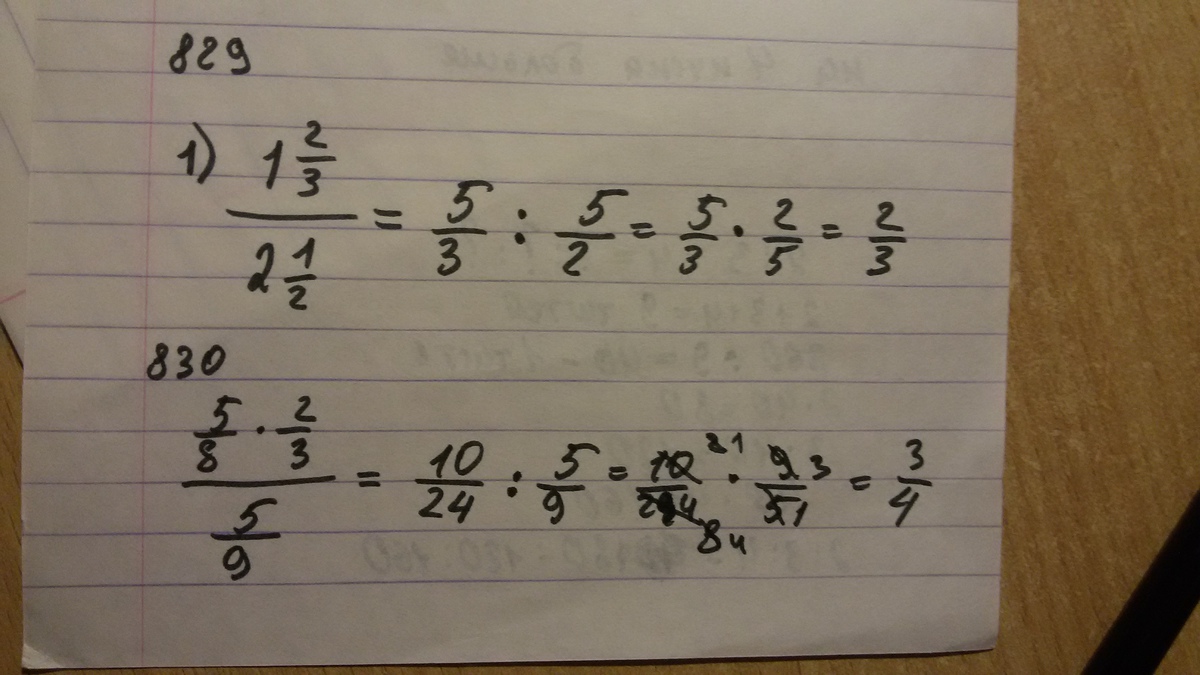 829
1) 1 2/3 / 2 1/2 = 5/3 : 5/2 = 5/3 · 2/5 = 2/3
830
5/8 · 2/3 / 5/9 = 10/24 : 5/9 = 10/24 · 9/5 = 3/4